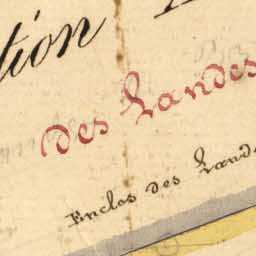 tion
des Landes
Enclos des Land